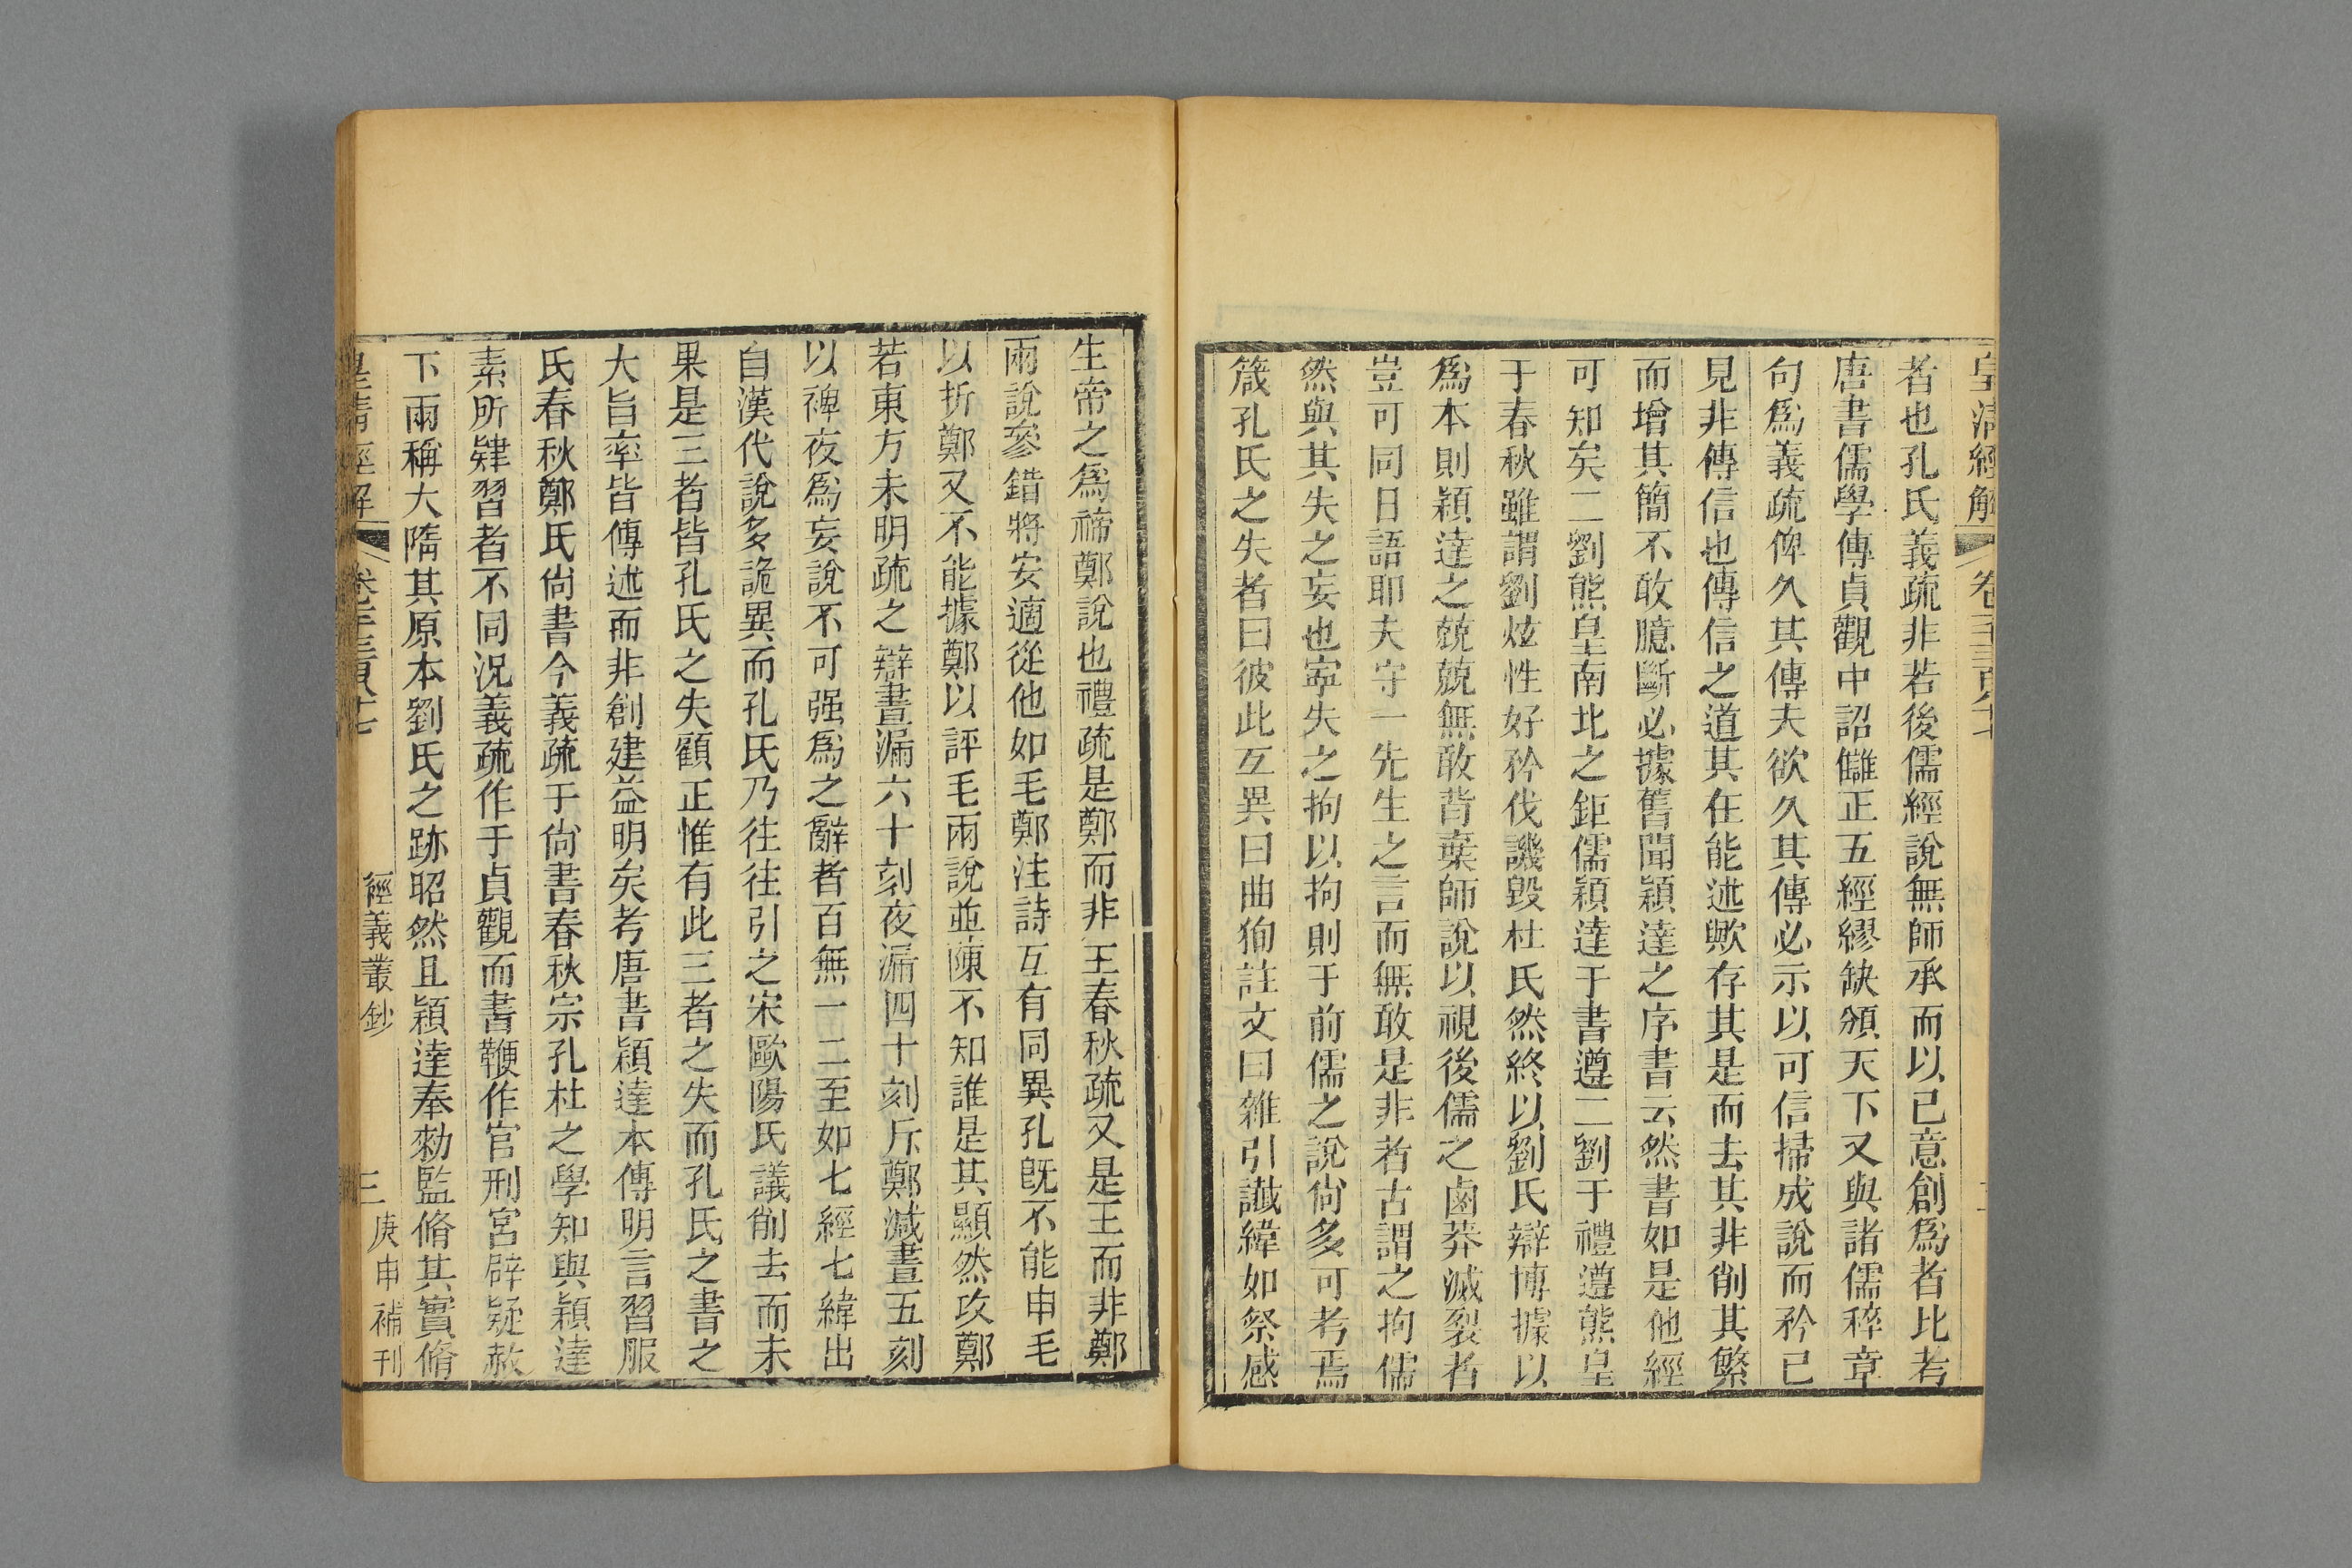 皇清經解
卷一千三百八十七
者也孔氏義疏非若後儒經說無師承而以己意創爲者比考
唐書儒學傳貞觀中詔讎正五經繆缺頒天下又與諸儒稡章
句爲義疏俾久其傳夫欲久其傳必示以可信掃成說而矜己
見非傳信也傳信之道其在能述歟存其是而去其非削其繁
而增其簡不敢臆斷必據舊聞穎達之序書云然書如是他經
可知矣二劉熊皇南北之鉅儒穎達于書遵二劉于禮遵熊皇
于春秋雖謂劉炫性好矜伐譏毀杜氏然終以劉氏辯博據以
爲本則穎達之兢兢無敢背棄師說以視後儒之鹵莽滅裂者
豈可同日語耶夫守一先生之言而無敢是非者古謂之拘儒
然與其失之妄也寧失之拘以拘則于前儒之說尙多可考焉
箴孔氏之失者曰彼此互異曰曲狥註文曰雜引讖緯如祭感
生帝之爲禘鄭說也禮疏是鄭而非王春秋疏又是王而非鄭
兩說參錯將安適從他如毛鄭注詩互有同異孔旣不能申毛
以折鄭又不能據鄭以評毛兩說並陳不知誰是其顯然攻鄭
若東方未明疏之辯晝漏六十刻夜漏四十刻斥鄭減晝五刻
以裨夜爲妄說不可强爲之辭者百無一二至如七經七緯出
自漢代說多詭異而孔氏乃往往引之宋歐陽氏議削去而未
果是三者皆孔氏之失顧正惟有此三者之失而孔氏之書之
大旨率皆傳述而非創建益明矣考唐書穎達本傳明言習服
氏春秋鄭氏尙書今義疏于尙書春秋宗孔杜之學知與穎達
素所肄習者不同況義疏作于貞觀而書鞭作官刑宮辟疑赦
下兩稱大隋其原本劉氏之跡昭然且穎達奉勑監脩其實脩
皇清經解
卷一千三百八十七
經義叢鈔
三
庚申補刊